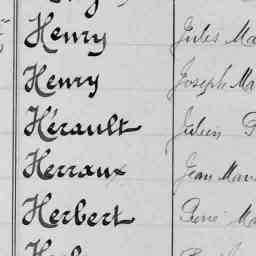 Henry Jules Ma
Henry Joseph Ma
Hérault Julien
Herraux Jean Mar
Herbert René Ma